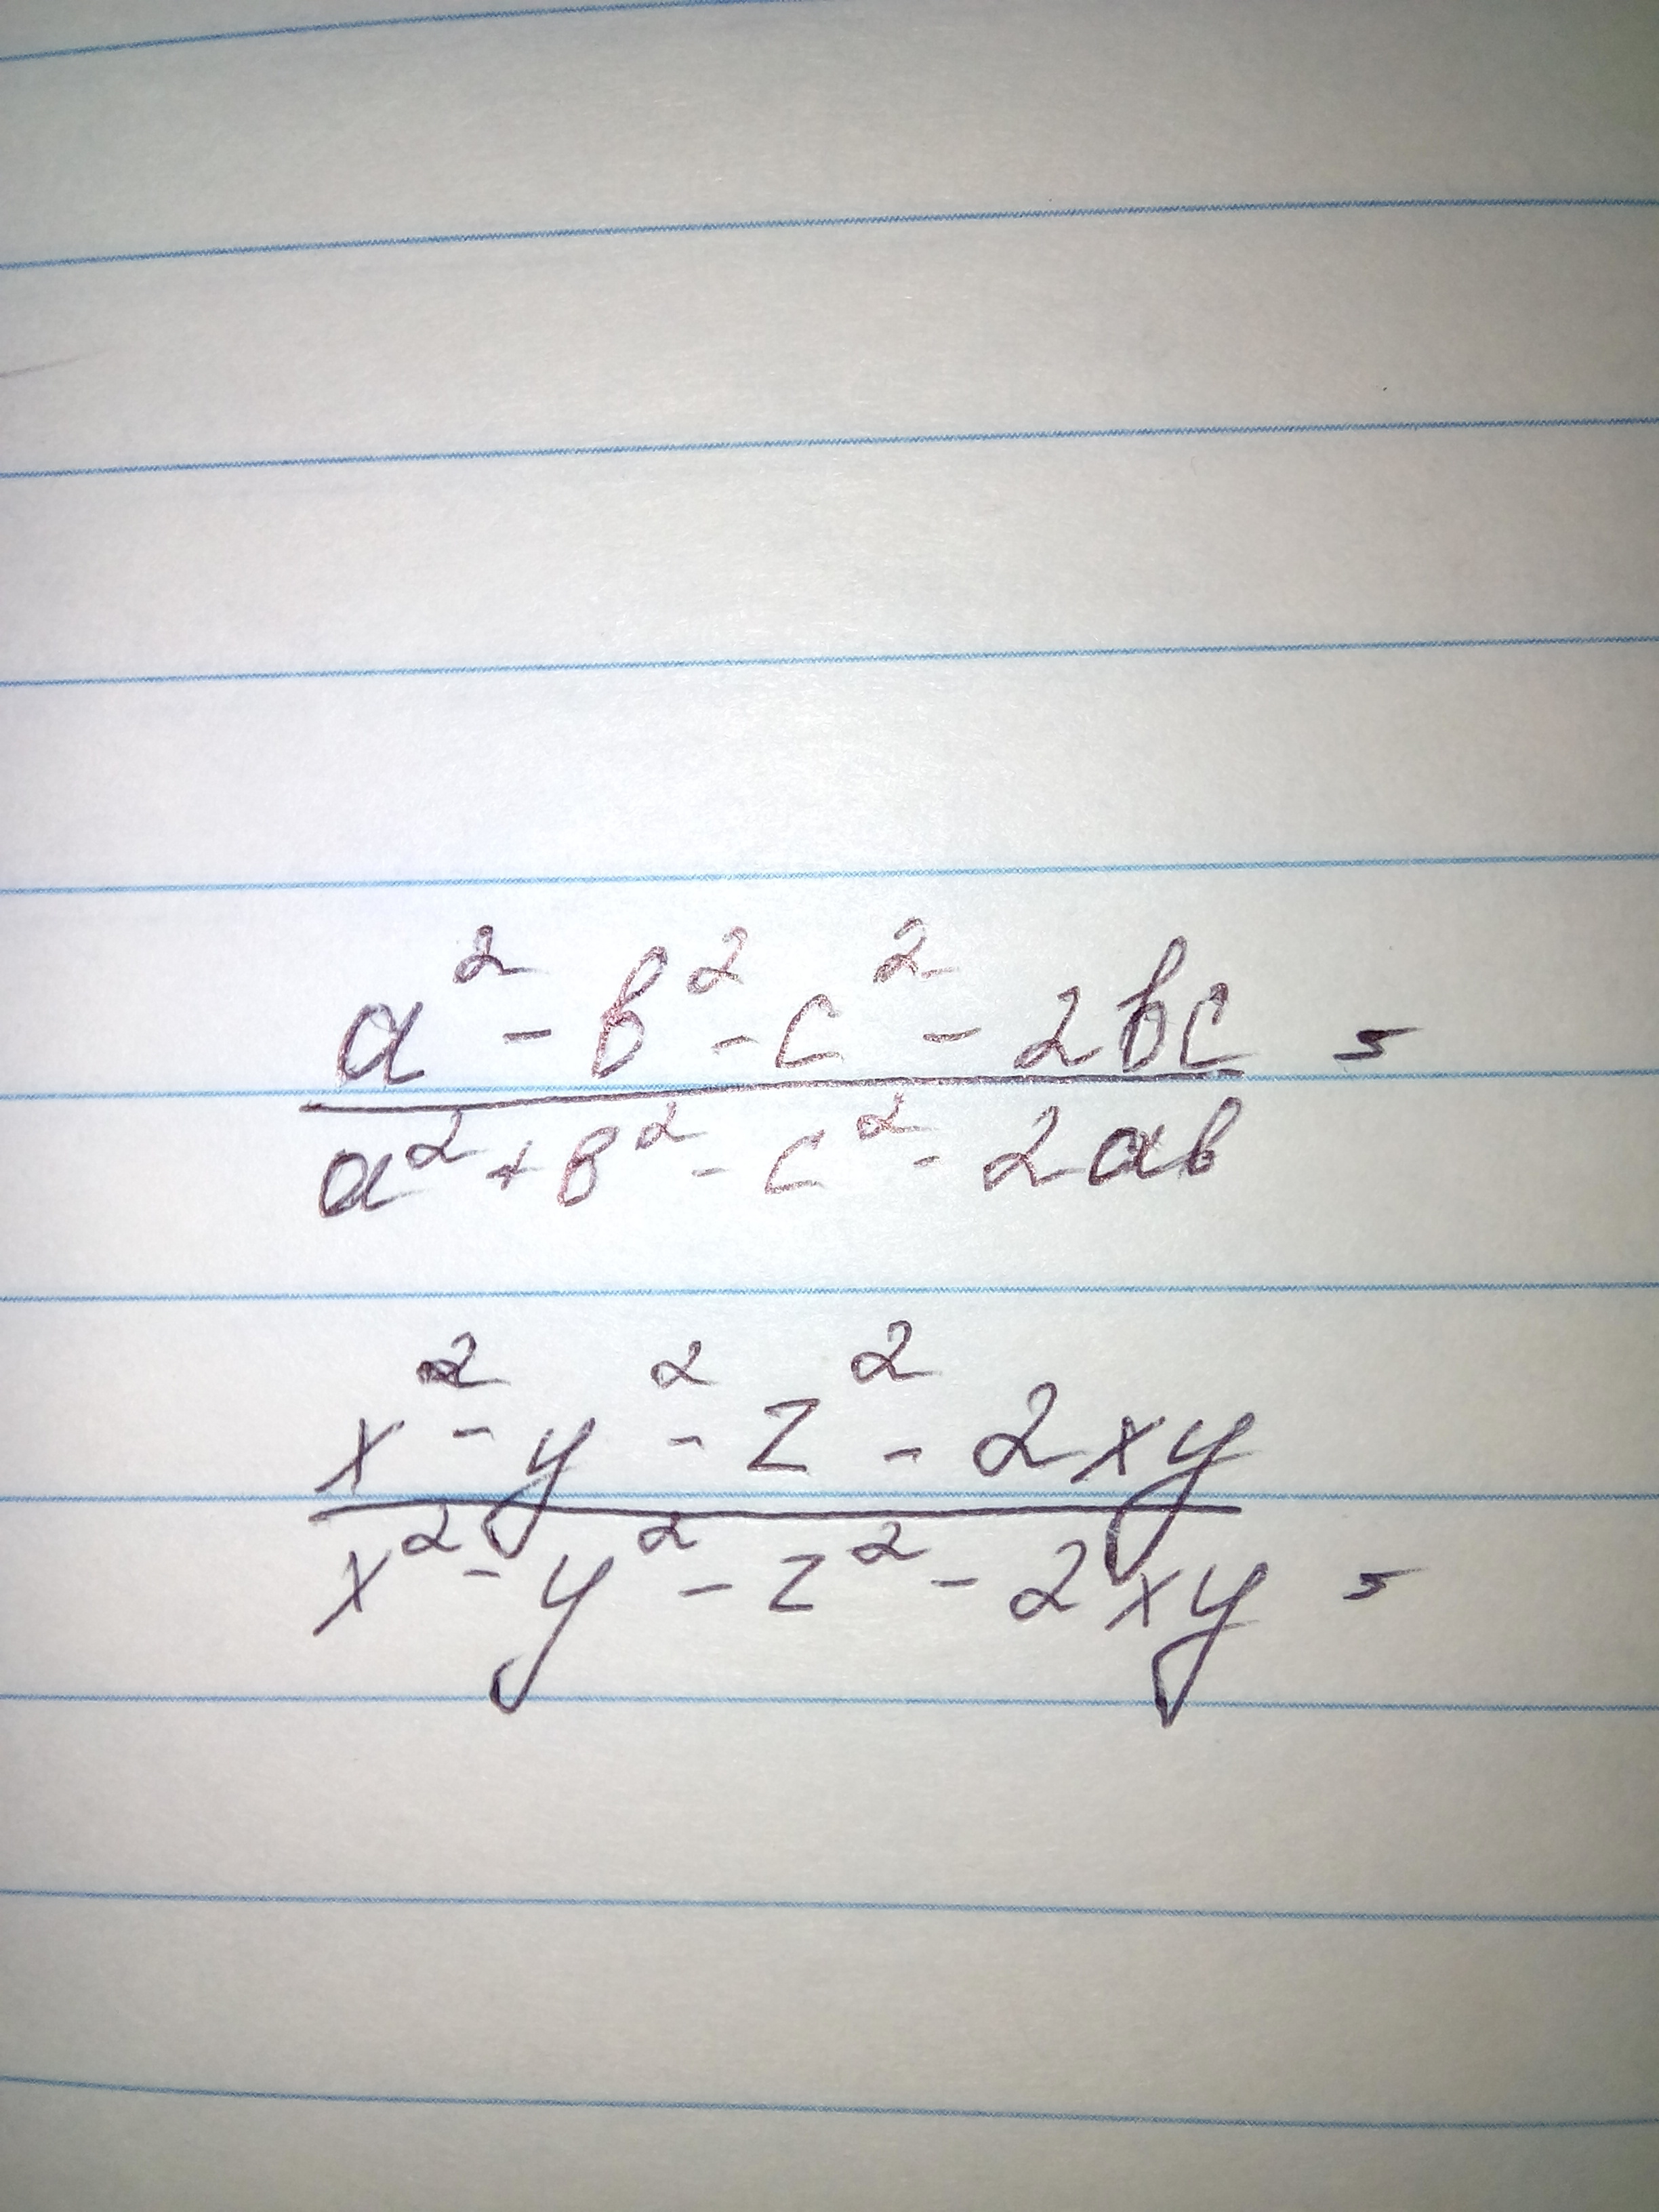 a² - b² - c² - 2bc =
a² + b² - c² - 2ab
x² - y² - z² - 2xy
x² - y² - z² - 2xy =